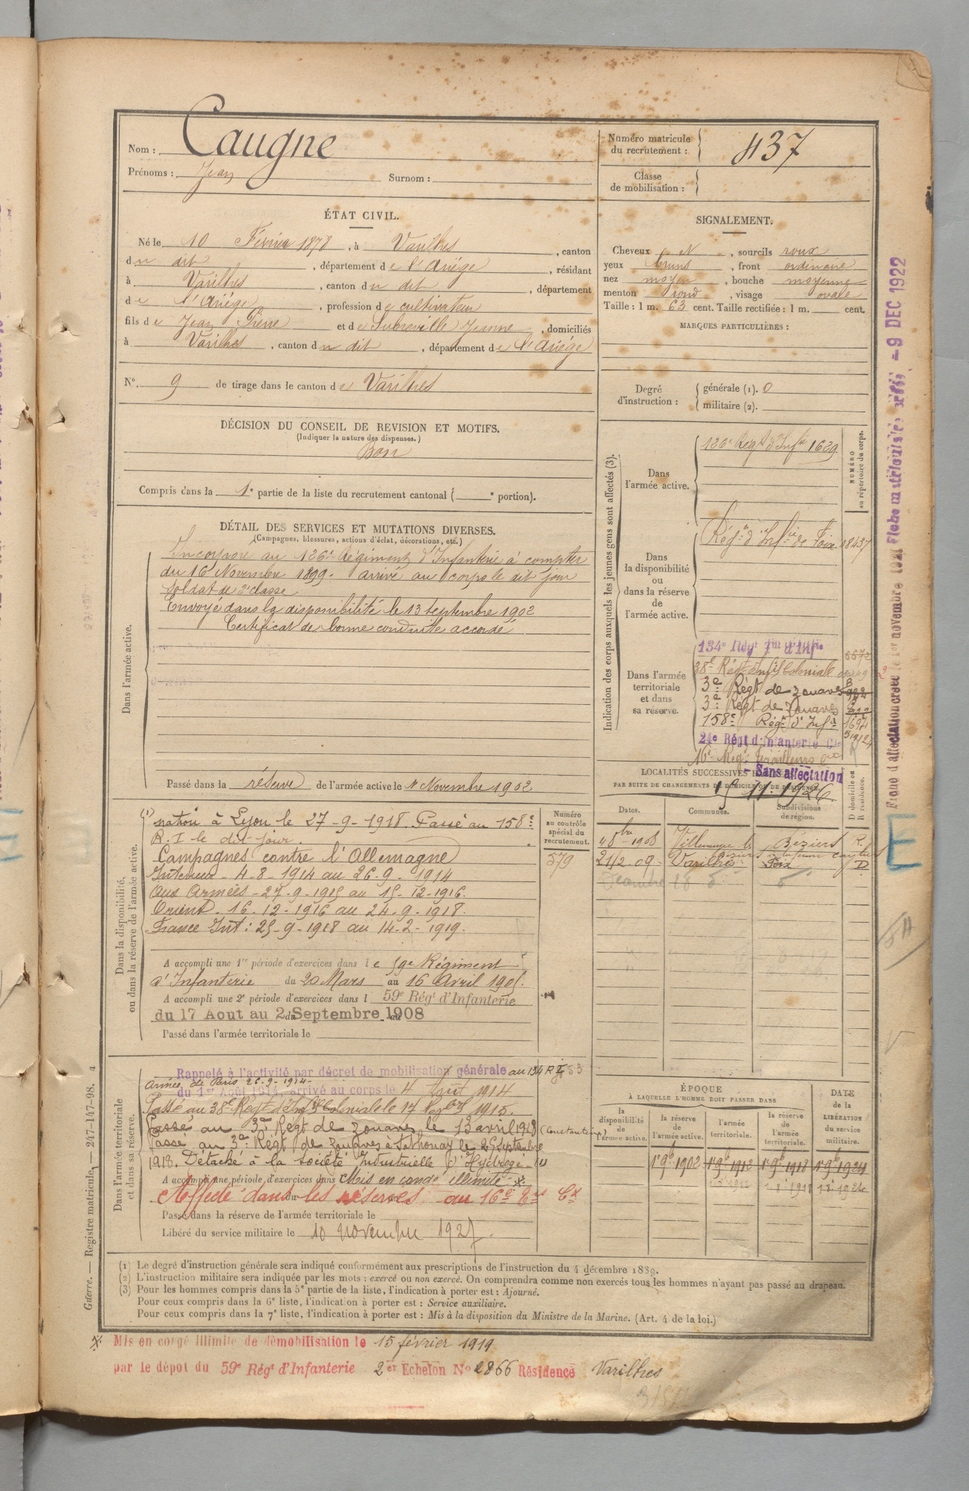 Nom : Caugne
Prénoms : Jean Surnom :
Numéro matricule du recrutement : 437
Classe de mobilisation :
ÉTAT CIVIL.
Né le 10 Février 1878, à Varilhes, canton
du dit, département de l'Ariège, résidant
à Varilhes, canton du dit, département
de l'Ariège, profession de cultivateur
fils de Jean Pierre et de Jeanne, domiciliés
à Varilhes, canton du dit, département de l'Ariège
N° 9 de tirage dans le canton de Varilhes
SIGNALEMENT.
Cheveux N, sourcils roux
yeux bruns, front ordinaire
nez moyen, bouche moyenne
menton rond, visage ovale
Taille : 1 m. 63 cent. Taille rectifiée : 1 m. cent.
MARQUES PARTICULIÈRES :
Degré d'instruction : générale (1). 0
militaire (2).
DÉCISION DU CONSEIL DE REVISION ET MOTIFS.
(Indiquer la nature des dispenses.)
Bon
Compris dans la 1e partie de la liste du recrutement cantonal ( e portion).
DÉTAIL DES SERVICES ET MUTATIONS DIVERSES.
(Campagnes, blessures, actions d'éclat, décorations, etc.)
Dans l'armée active.
Incorporé au 126e Régiment d'Infanterie à compter
du 16 Novembre 1899. arrivé au corps le dit jour
Soldat de 2e classe
Envoyé dans la disponibilité le 13 septembre 1902
Certificat de bonne conduite accordé
Passé dans la réserve de l'armée active le 1er Novembre 1902
Indication des corps auxquels les jeunes gens sont affectés (3).
NUMÉRO au répertoire du corps.
Dans l'armée active.
126e Régt d'Infie 1639
Dans la disponibilité ou dans la réserve de l'armée active.
Régt d'Infie de Foix
Dans l'armée territoriale et dans sa réserve.
134e Régt Tal d'Infie
38e Régt Infie Coloniale
3e Régt de zouaves
3e Régt de Zouaves
158e Régt d'Infie
24e Régt d'Infanterie Cle
16e Régt Tirailleurs
Sans affectation
15.11.1926
LOCALITÉS SUCCESSIVES
PAR SUITE DE CHANGEMENTS DE DOMICILE OU DE RÉSIDENCE.
Dates. Communes. Subdivisions de région. D domicile ou R résidence.
1908 Villeneuve les Béziers Béziers R.
21/2 09 Varilhes Foix D
Dans la disponibilité ou dans la réserve de l'armée active.
Numéro au contrôle spécial du recrutement.
579
(1) nation à Lyon le 27-9-1918. Passé au 158e
R.I le dit jour
Campagnes contre l'Allemagne
Intérieur - 4-8-1914 au 26-9-1914
Aux Armées - 27-9-1915 au 15-12-1916.
Orient. 16-12-1916 au 24-9-1918.
France Int : 25-9-1918 au 14-2-1919.
A accompli une 1re période d'exercices dans le 59e Régiment
d'Infanterie du 20 Mars au 16 Avril 1905.
A accompli une 2e période d'exercices dans l 59e Régt d'Infanterie
du 17 Aout au 2 Septembre 1908
Passé dans l'armée territoriale le
Dans l'armée territoriale et dans sa réserve.
Rappelé à l'activité par décret de mobilisation générale au 134 R I
armée de Paris 26-9-1914
du 1er Août 1914, arrivé au corps le 4 Août 1914
Passé au 38e Régt d'Infie Coloniale le 17 1915.
Passé au 3e Régt de zouaves le 13 avril 1918 (Constantine)
Passé au 3e Régt de zouaves à Sathonay le 25 Septembre
1918. Détaché à la société Industrielle
A accompli une période d'exercices dans Mis en congé illimité ※
Affecté dans les réserves au 16e Cx
Passé dans la réserve de l'armée territoriale le
Libéré du service militaire le 10 novembre 1927.
ÉPOQUE
À LAQUELLE L'HOMME DOIT PASSER DANS
la disponibilité de l'armée active. la réserve de l'armée active. l'armée territoriale. la réserve de l'armée territoriale. DATE de la LIBÉRATION du service militaire.
1 9bre 1902 1 9bre 1912 1 9bre 1918 1 9bre 1924
(1) Le degré d'instruction générale sera indiqué conformément aux prescriptions de l'instruction du 4 décembre 1889.
(2) L'instruction militaire sera indiquée par les mots : exercé ou non exercé. On comprendra comme non exercés tous les hommes n'ayant pas passé au drapeau.
(3) Pour les hommes compris dans la 5e partie de la liste, l'indication à porter est : Ajourné.
Pour ceux compris dans la 6e liste, l'indication à porter est : Service auxiliaire.
Pour ceux compris dans la 7e liste, l'indication à porter est : Mis à la disposition du Ministre de la Marine. (Art. 4 de la loi.)
※ Mis en congé illimité de démobilisation le 15 février 1919
par le dépôt du 59e Régt d'Infanterie 2e Echelon N° 2866 Résidence Varilhes
Guerre. — Registre matricule. — 247-147-98.
9 DEC 1922